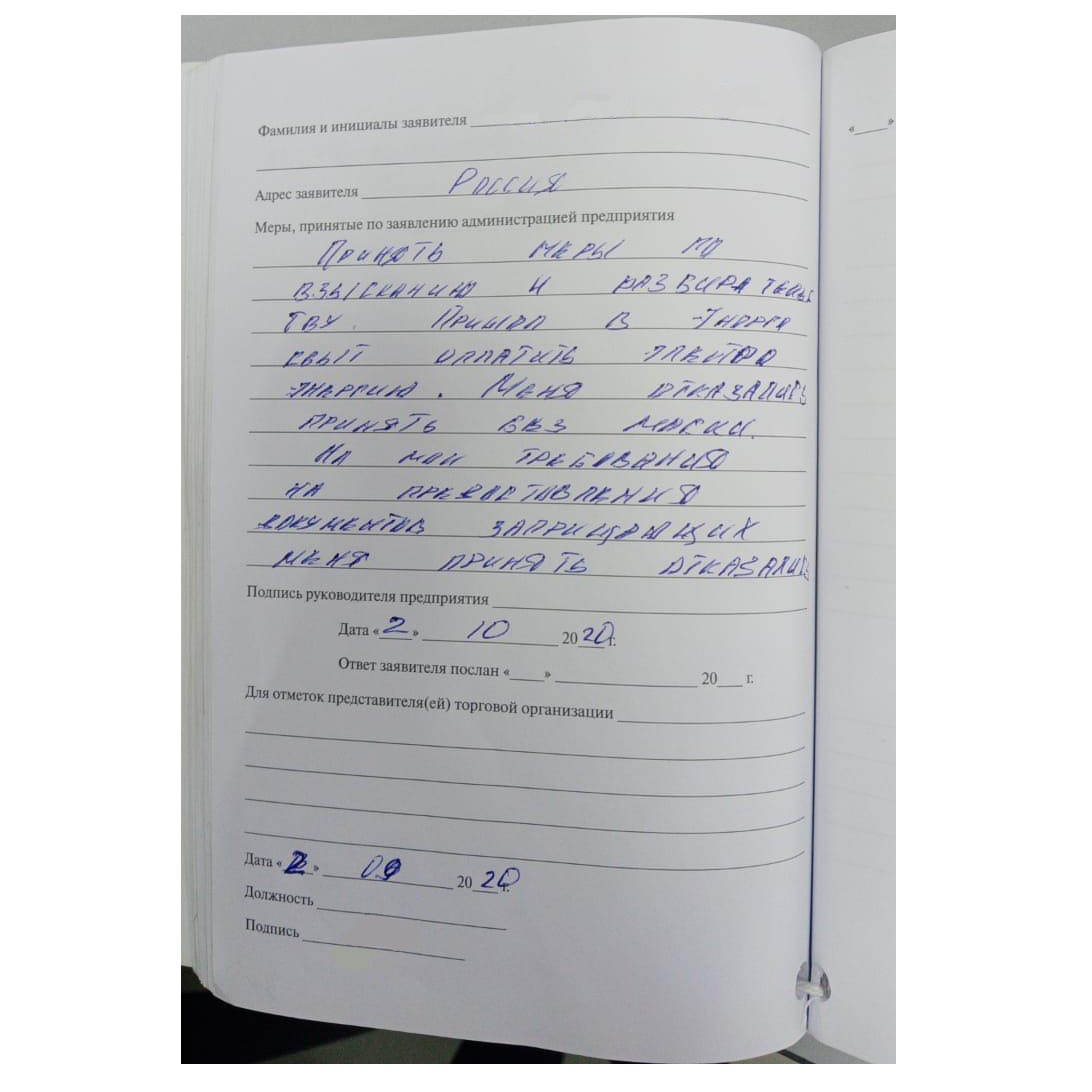 Фамилия и инициалы заявителя
Адрес заявителя Россия
Меры, принятые по заявлению администрацией предприятия
Принять меры по
взысканию и разбиратель
тву. Пришол в Энерго
сбыт оплатить электро
энергию. Меня отказались
принять без маски.
На мои требования
на предоставления
документов заприщающих
меня принять отказались
Подпись руководителя предприятия
Дата «2» 10 2020 г.
Ответ заявителя послан «    » 20    г.
Для отметок представителя(ей) торговой организации
Дата «2» 09 2020 г.
Должность
Подпись
«    »